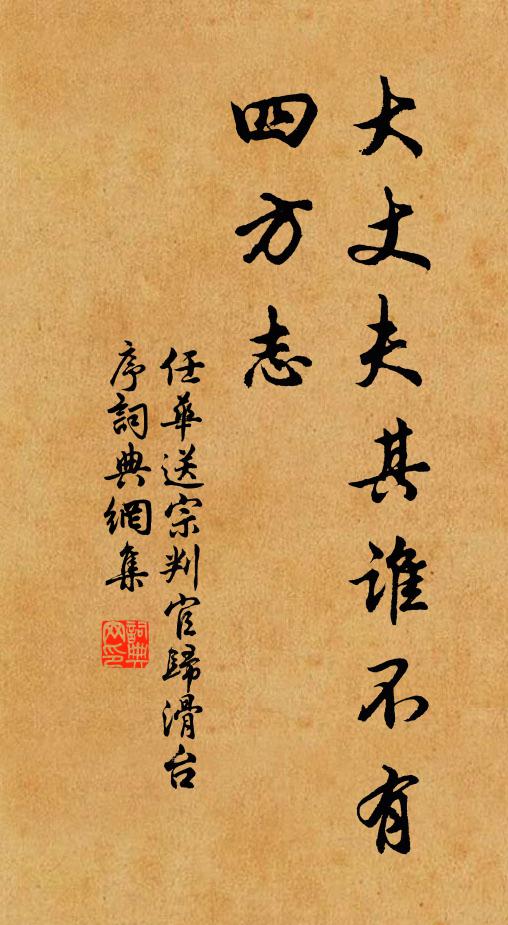 大丈夫其誰不有
四方志
任華送宗判官歸滑台
序詞典網集
詞典
网印